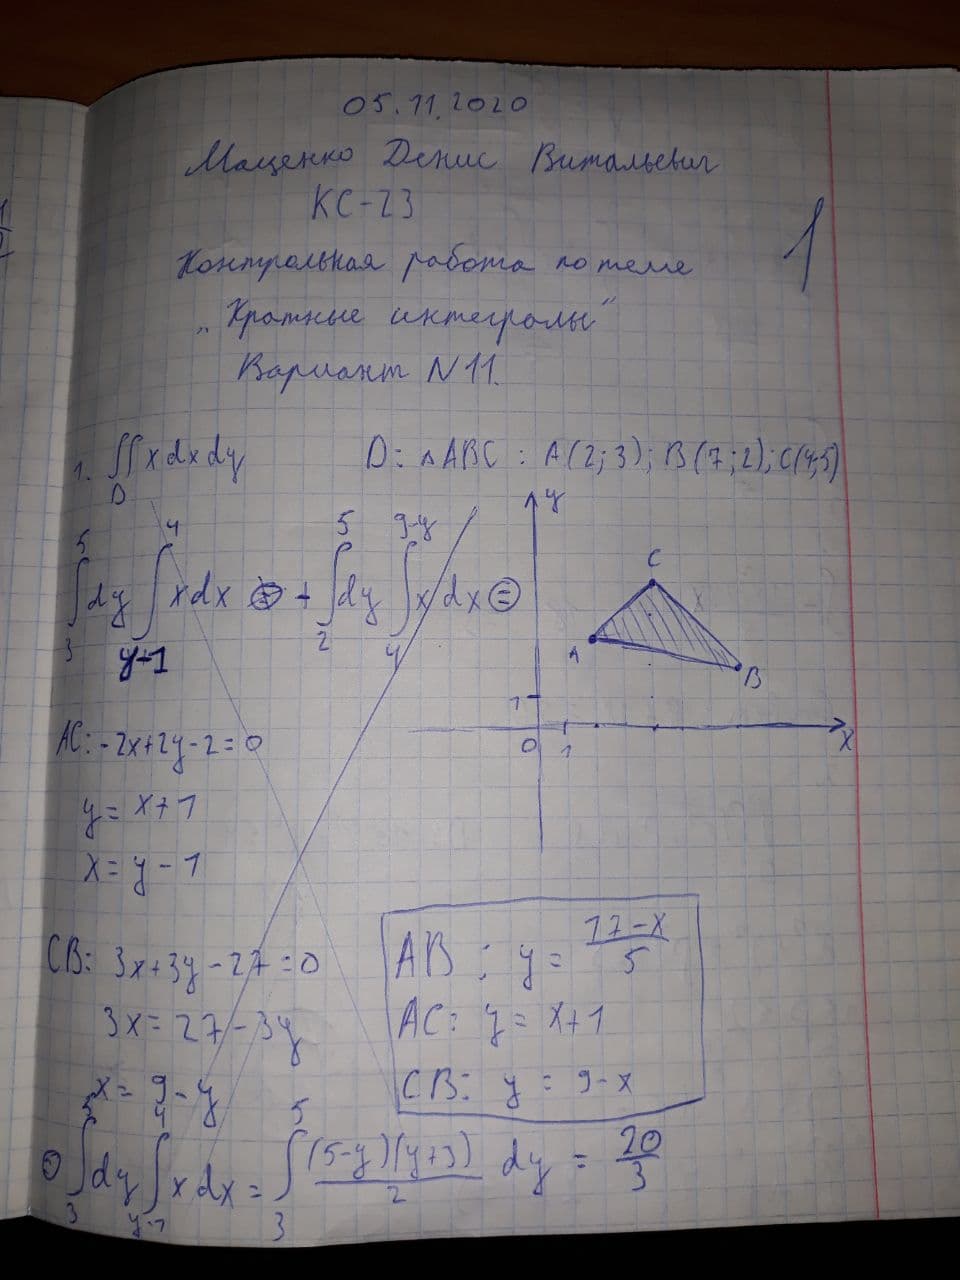 05.11.2020
Маценко Денис Витальевич
КС-23
1
Контрольная работа по теме
"Кратные интегралы"
Вариант N11.
1. ∬ x dx dy D: △ABC : A(2;3); B(7;2); C(4;5)
D
5 4 5 9-y
∫dy ∫ x dx + ∫dy ∫ x dx =
3 y-1 2 4
y
C
A
B
1
0 1 x
AC: -2x+2y-2=0
y = x+1
x = y-1
CB: 3x+3y-27=0
3x = 27-3y
x = 9-y
AB : y = 17-x / 5
AC: y = x+1
CB: y = 9-x
5 4 5
= ∫dy ∫ x dx = ∫ (5-y)(y+3) / 2 dy = 20 / 3
3 y-1 3